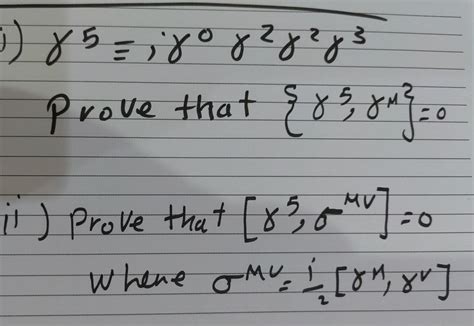 i) γ⁵ ≡ iγ⁰ γ² γ² γ³
Prove that {γ⁵, γᴹ} = 0
ii) Prove that [γ⁵, σᴹⱽ] = 0
Where σᴹⱽ = i/2 [γᴹ, γⱽ]